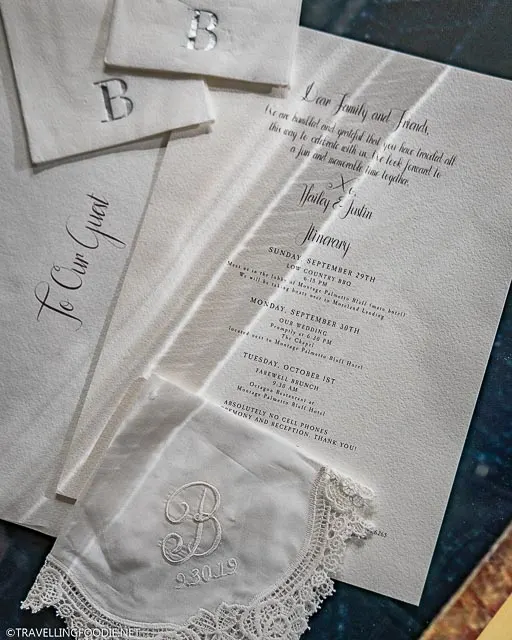 B
B
To Our Guest
Dear Family and Friends,
We are humbled and grateful that you have traveled all
this way to celebrate with us. We look forward to
a fun and memorable time together.
Xo,
Hailey & Justin
Itinerary
SUNDAY, SEPTEMBER 29TH
LOW COUNTRY BBQ
6:15 PM
Meet us in the lobby of Montage Palmetto Bluff (main hotel)
We will be taking boats over to Moreland Landing
MONDAY, SEPTEMBER 30TH
OUR WEDDING
Promptly at 6:30 PM
The Chapel
located next to Montage Palmetto Bluff Hotel
TUESDAY, OCTOBER 1ST
FAREWELL BRUNCH
9:30 AM
Octagon Restaurant at
Montage Palmetto Bluff Hotel
ABSOLUTELY NO CELL PHONES
EMONY AND RECEPTION, THANK YOU!
8265
B
9.30.19
©TRAVELLINGFOODIE.NET